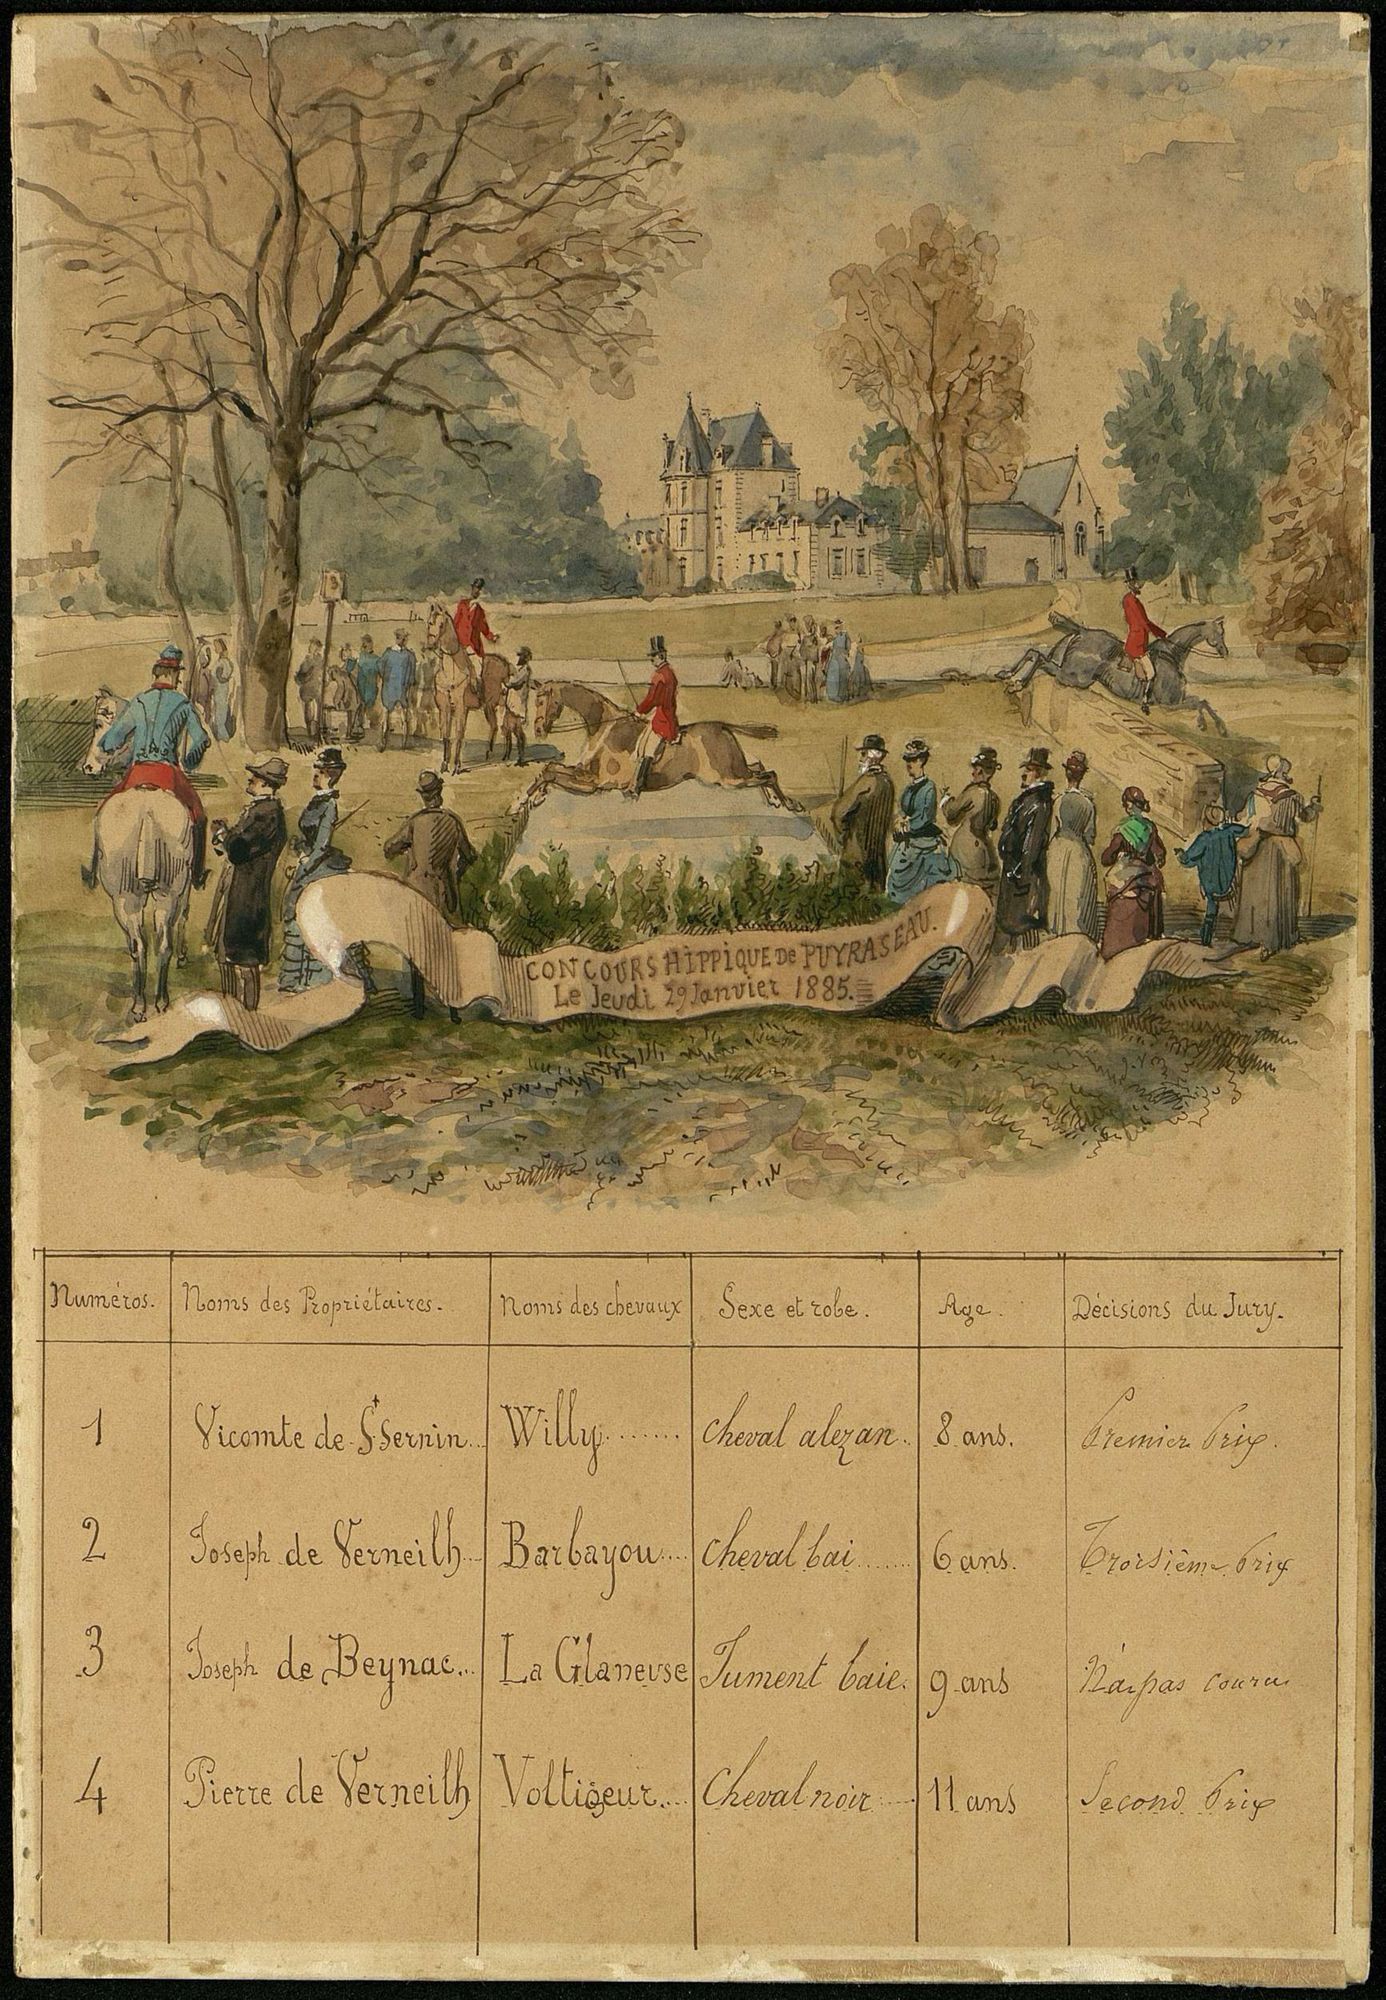 3
CONCOURS HIPPIQUE DE PUYRASEAU.
Le Jeudi 29 Janvier 1885.
Numéros. Noms des Propriétaires. Noms des chevaux Sexe et robe. Age. Décisions du Jury.
1 Vicomte de St Sernin... Willy....... cheval alezan.. 8 ans. Premier Prix.
2 Joseph de Verneilh... Barbayou.... cheval bai....... 6 ans. Troisième Prix
3 Joseph de Beynac... La Glaneuse Jument baie. 9 ans N'a pas couru
4 Pierre de Verneilh Voltigeur.... Cheval noir..... 11 ans Second Prix